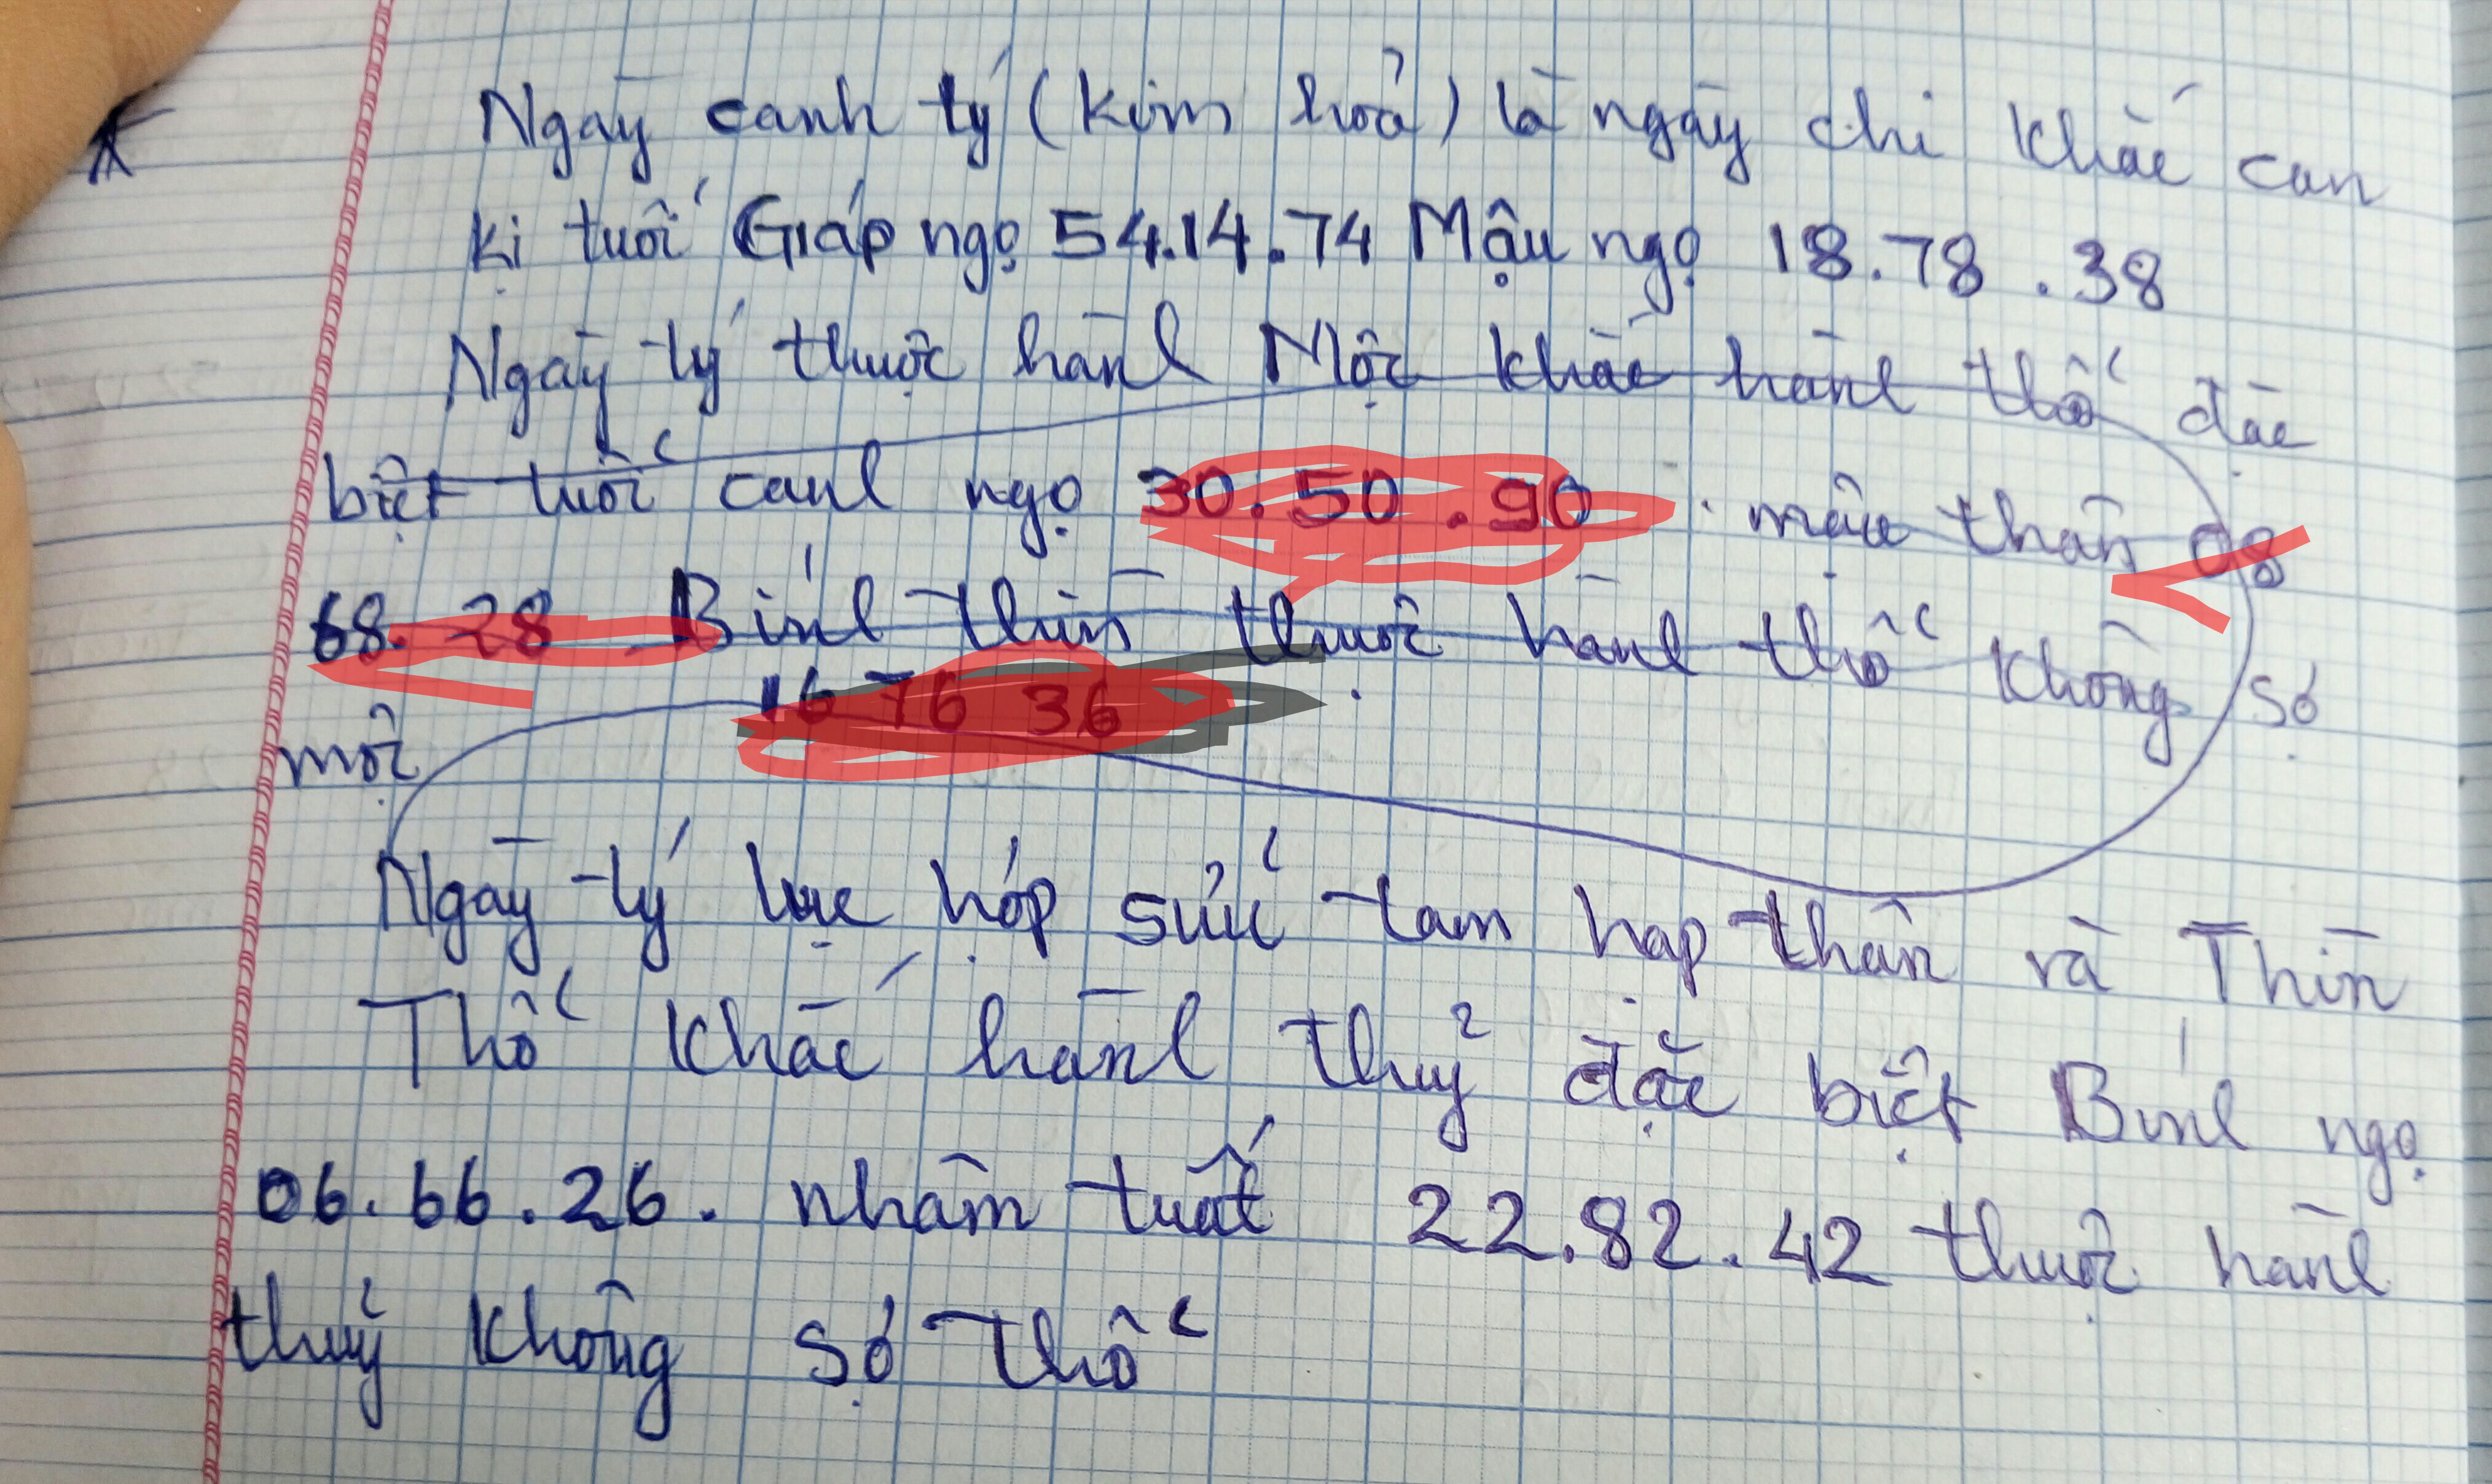 Ngày canh tý (kim hoả) là ngày chi khắc can
kị tuổi Giáp ngọ 54.14.74 Mậu ngọ 18.78.38
Ngày tý thuộc hành Mộc khắc hành thổ đặc
biệt tuổi canh ngọ 30.50.90. mậu thân 08
68.28 Bính thìn thuộc hành thổ không sợ
16 76 36
mộc
Ngày tý lục hợp sửu tam hạp thân và Thìn
Thổ khắc hành thuỷ đặc biệt Bính ngọ
06.66.26. nhâm tuất 22.82.42 thuộc hành
thuỷ không sợ Thổ